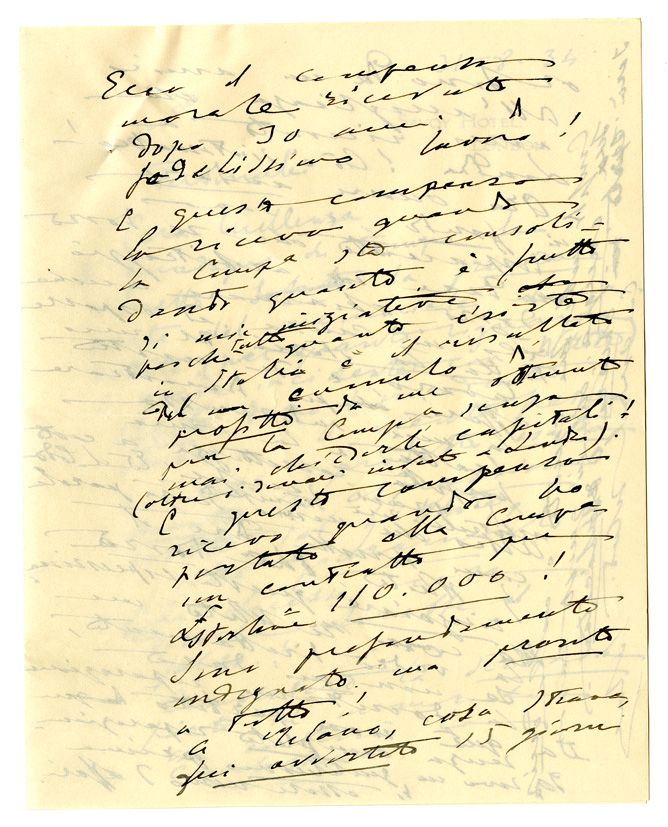 Ecco il compenso
morale ricevuto
dopo 30 anni di
fedelissimo lavoro!
E questo compenso
lo ricevo quando
la Compa sta consoli=
dando quanto è frutto
di mie iniziative
poiché tutto quanto esiste
in Italia è il risultato
del cumulo di
profitti da me ottenuti
per la Compa senza
mai chiederle capitali!
(oltre i denari inviati a Londra).
E questo compenso
ricevo quando ho
portato alla Compa
un contratto per
Lsterline 110.000!
Sono profondamente
indignato, ma pronto
a tutto!
A Milano, cosa strana,
fui avvertito 15 giorni